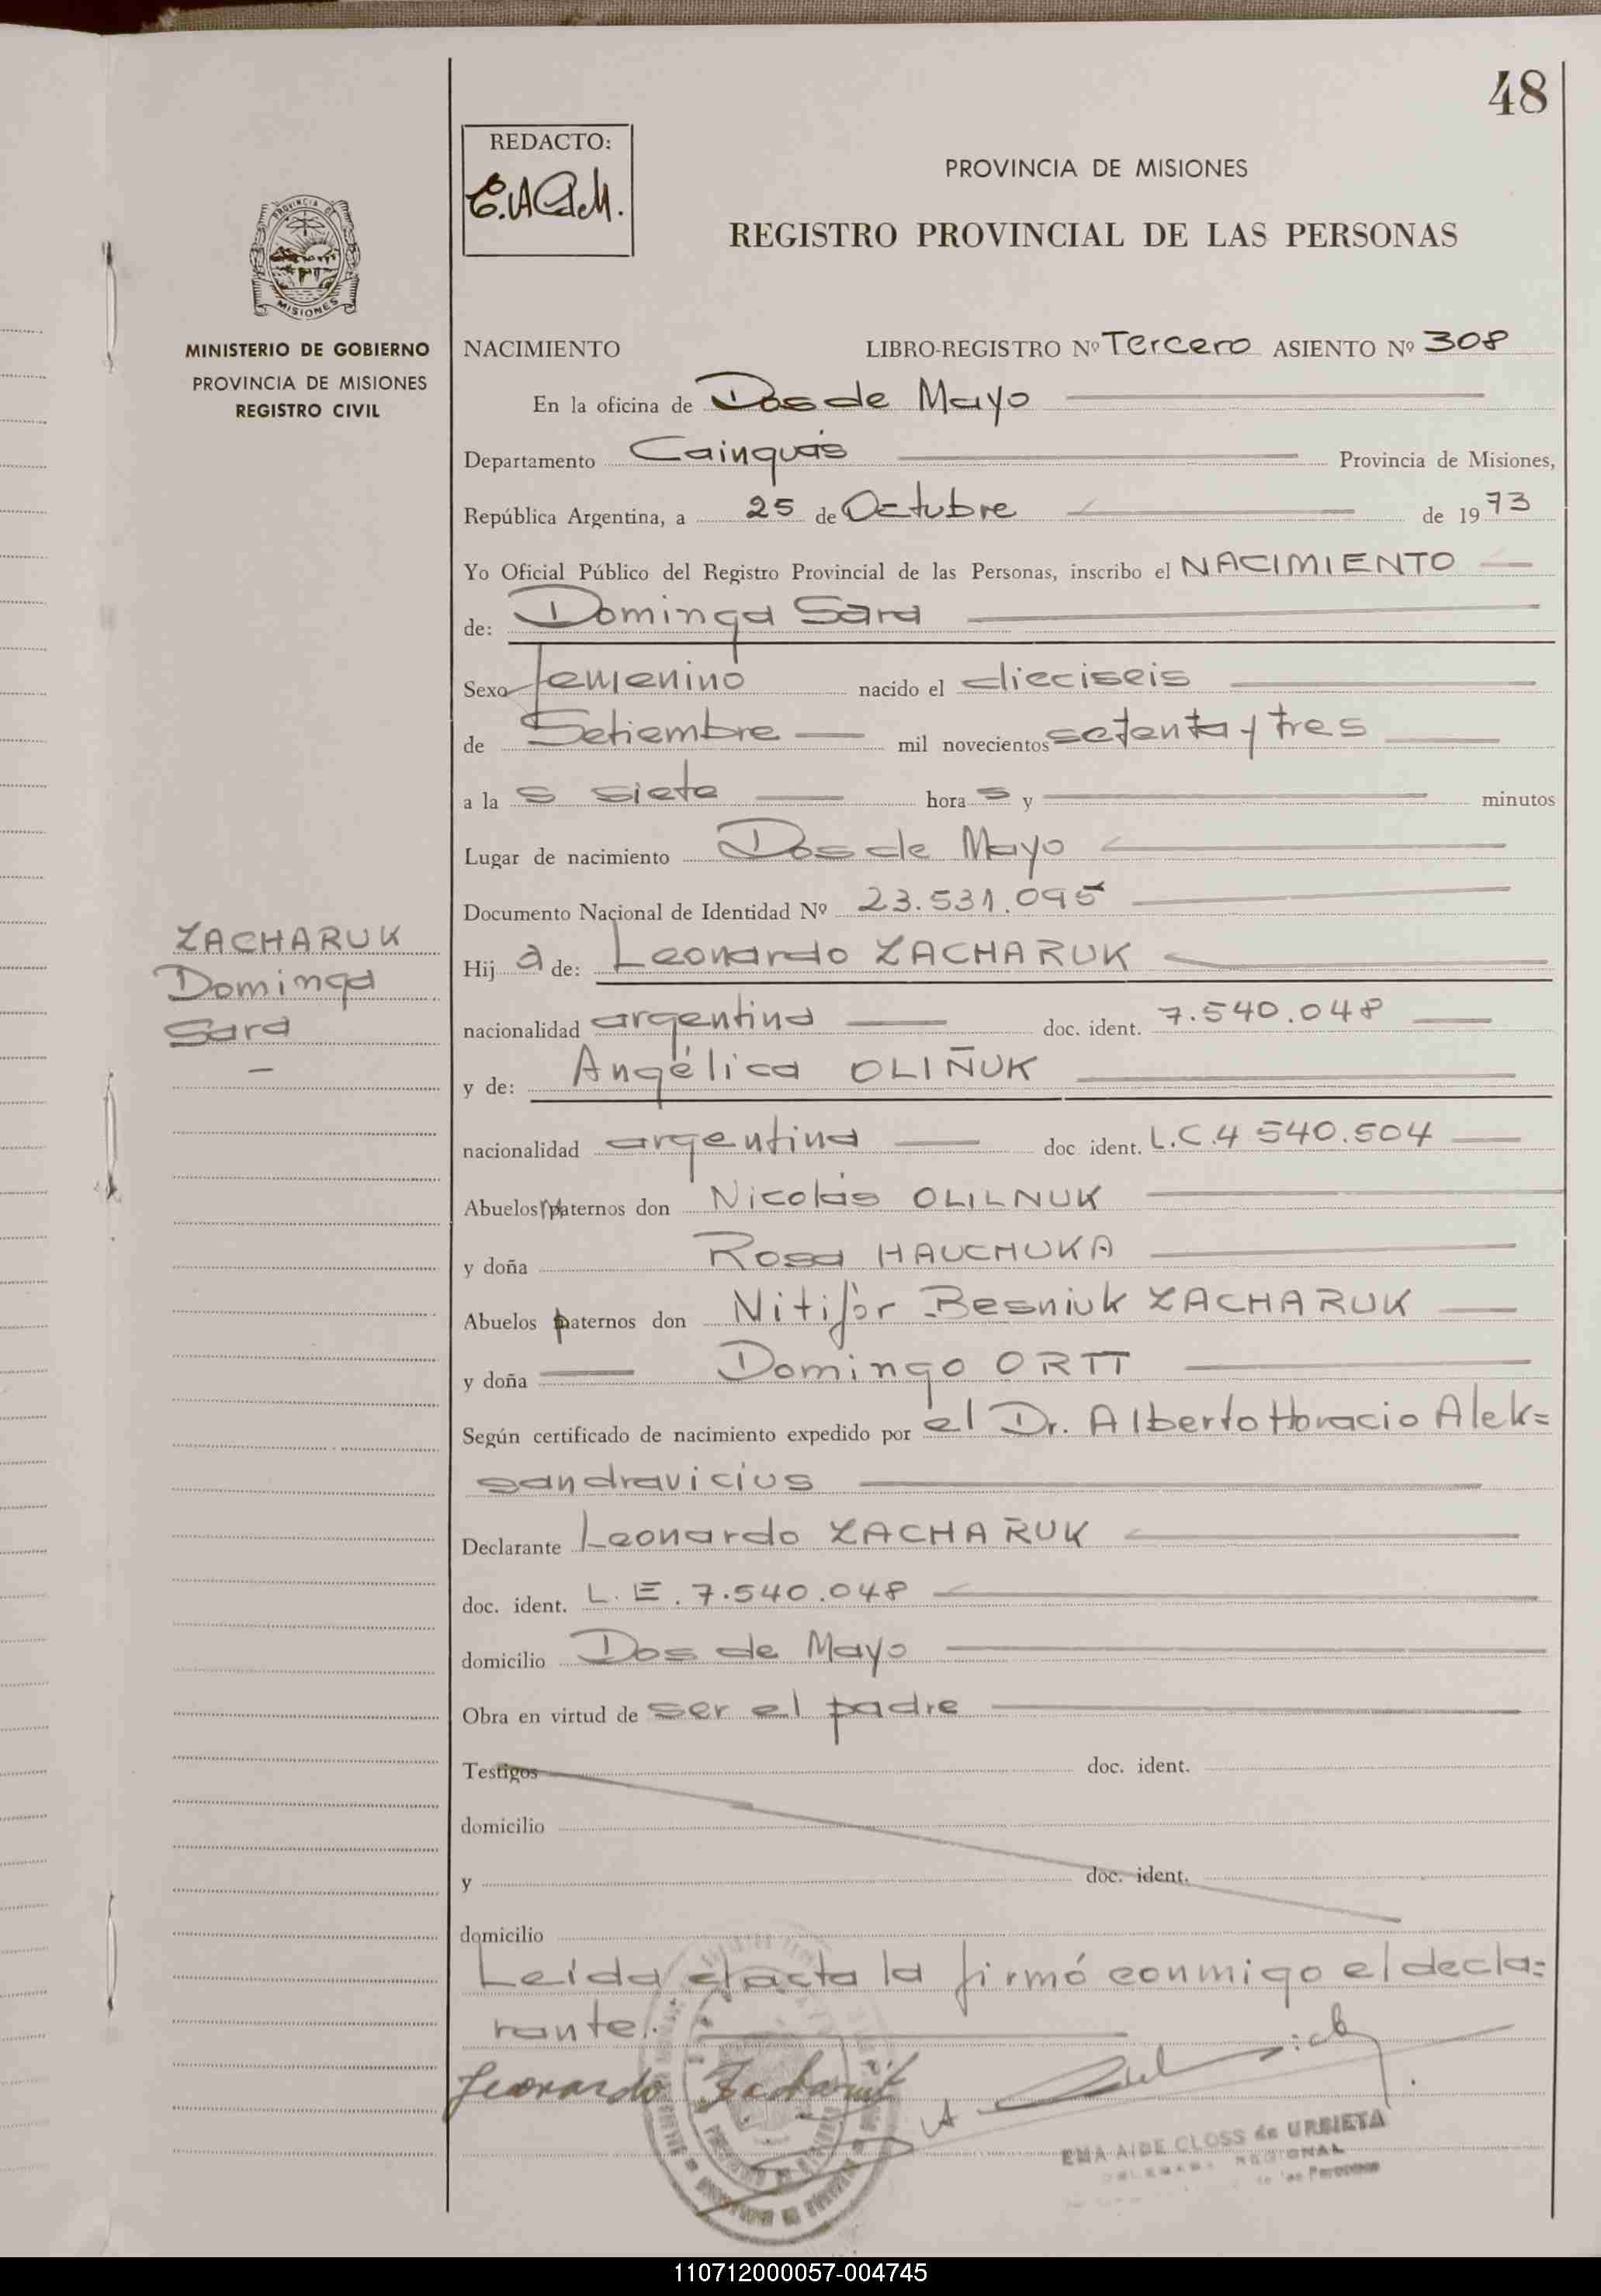 48
REDACTO:
E.A.C.d.M.
PROVINCIA DE MISIONES
REGISTRO PROVINCIAL DE LAS PERSONAS
PROVINCIA DE
MISIONES
MINISTERIO DE GOBIERNO
PROVINCIA DE MISIONES
REGISTRO CIVIL
NACIMIENTO LIBRO-REGISTRO Nº Tercero ASIENTO Nº 308
En la oficina de Dos de Mayo
Departamento Cainguás Provincia de Misiones,
República Argentina, a 25 de Octubre de 1973
Yo Oficial Público del Registro Provincial de las Personas, inscribo el NACIMIENTO
de: Dominga Sara
Sexo femenino nacido el dieciseis
de Setiembre mil novecientos setenta y tres
a la s siete hora s y minutos
Lugar de nacimiento Dos de Mayo
Documento Nacional de Identidad Nº 23.531.095
ZACHARUK
Dominga
Sara
Hij a de: Leonardo ZACHARUK
nacionalidad argentina doc. ident. 7.540.048
y de: Angélica OLIÑUK
nacionalidad argentina doc ident. L.C.4 540.504
Abuelos maternos don Nicolás OLILNUK
y doña Rosa HAUCHUKA
Abuelos paternos don Nitifor Besniuk ZACHARUK
y doña Domingo ORTT
Según certificado de nacimiento expedido por el Dr. Alberto Horacio Alek=
sandravicius
Declarante Leonardo ZACHARUK
doc. ident. L.E. 7.540.048
domicilio Dos de Mayo
Obra en virtud de ser el padre
Testigos doc. ident.
domicilio
y doc. ident.
domicilio
Leída el acta la firmó conmigo el decla=
rante.
Leonardo Zacharuk
EMA AIDE CLOSS de URRIETA
REGIONAL
de las Personas
110712000057-004745